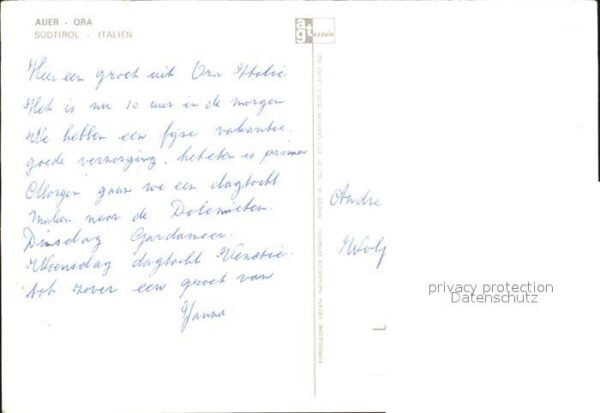 AUER - ORA
SÜDTIROL - ITALIEN
agt
Hier een groet uit Ora Italie.
Het is nu 10 uur in de morgen
We hebben een fyne vakantie.
goede verzorging. het eten is prima
Morgen gaan we een dagtocht
maken naar de Dolomieten.
Dinsdag Gardameer.
Woensdag dagtocht Venetie.
tot zover een groet van
Hanna.
Andre
Wolf
privacy protection
Datenschutz